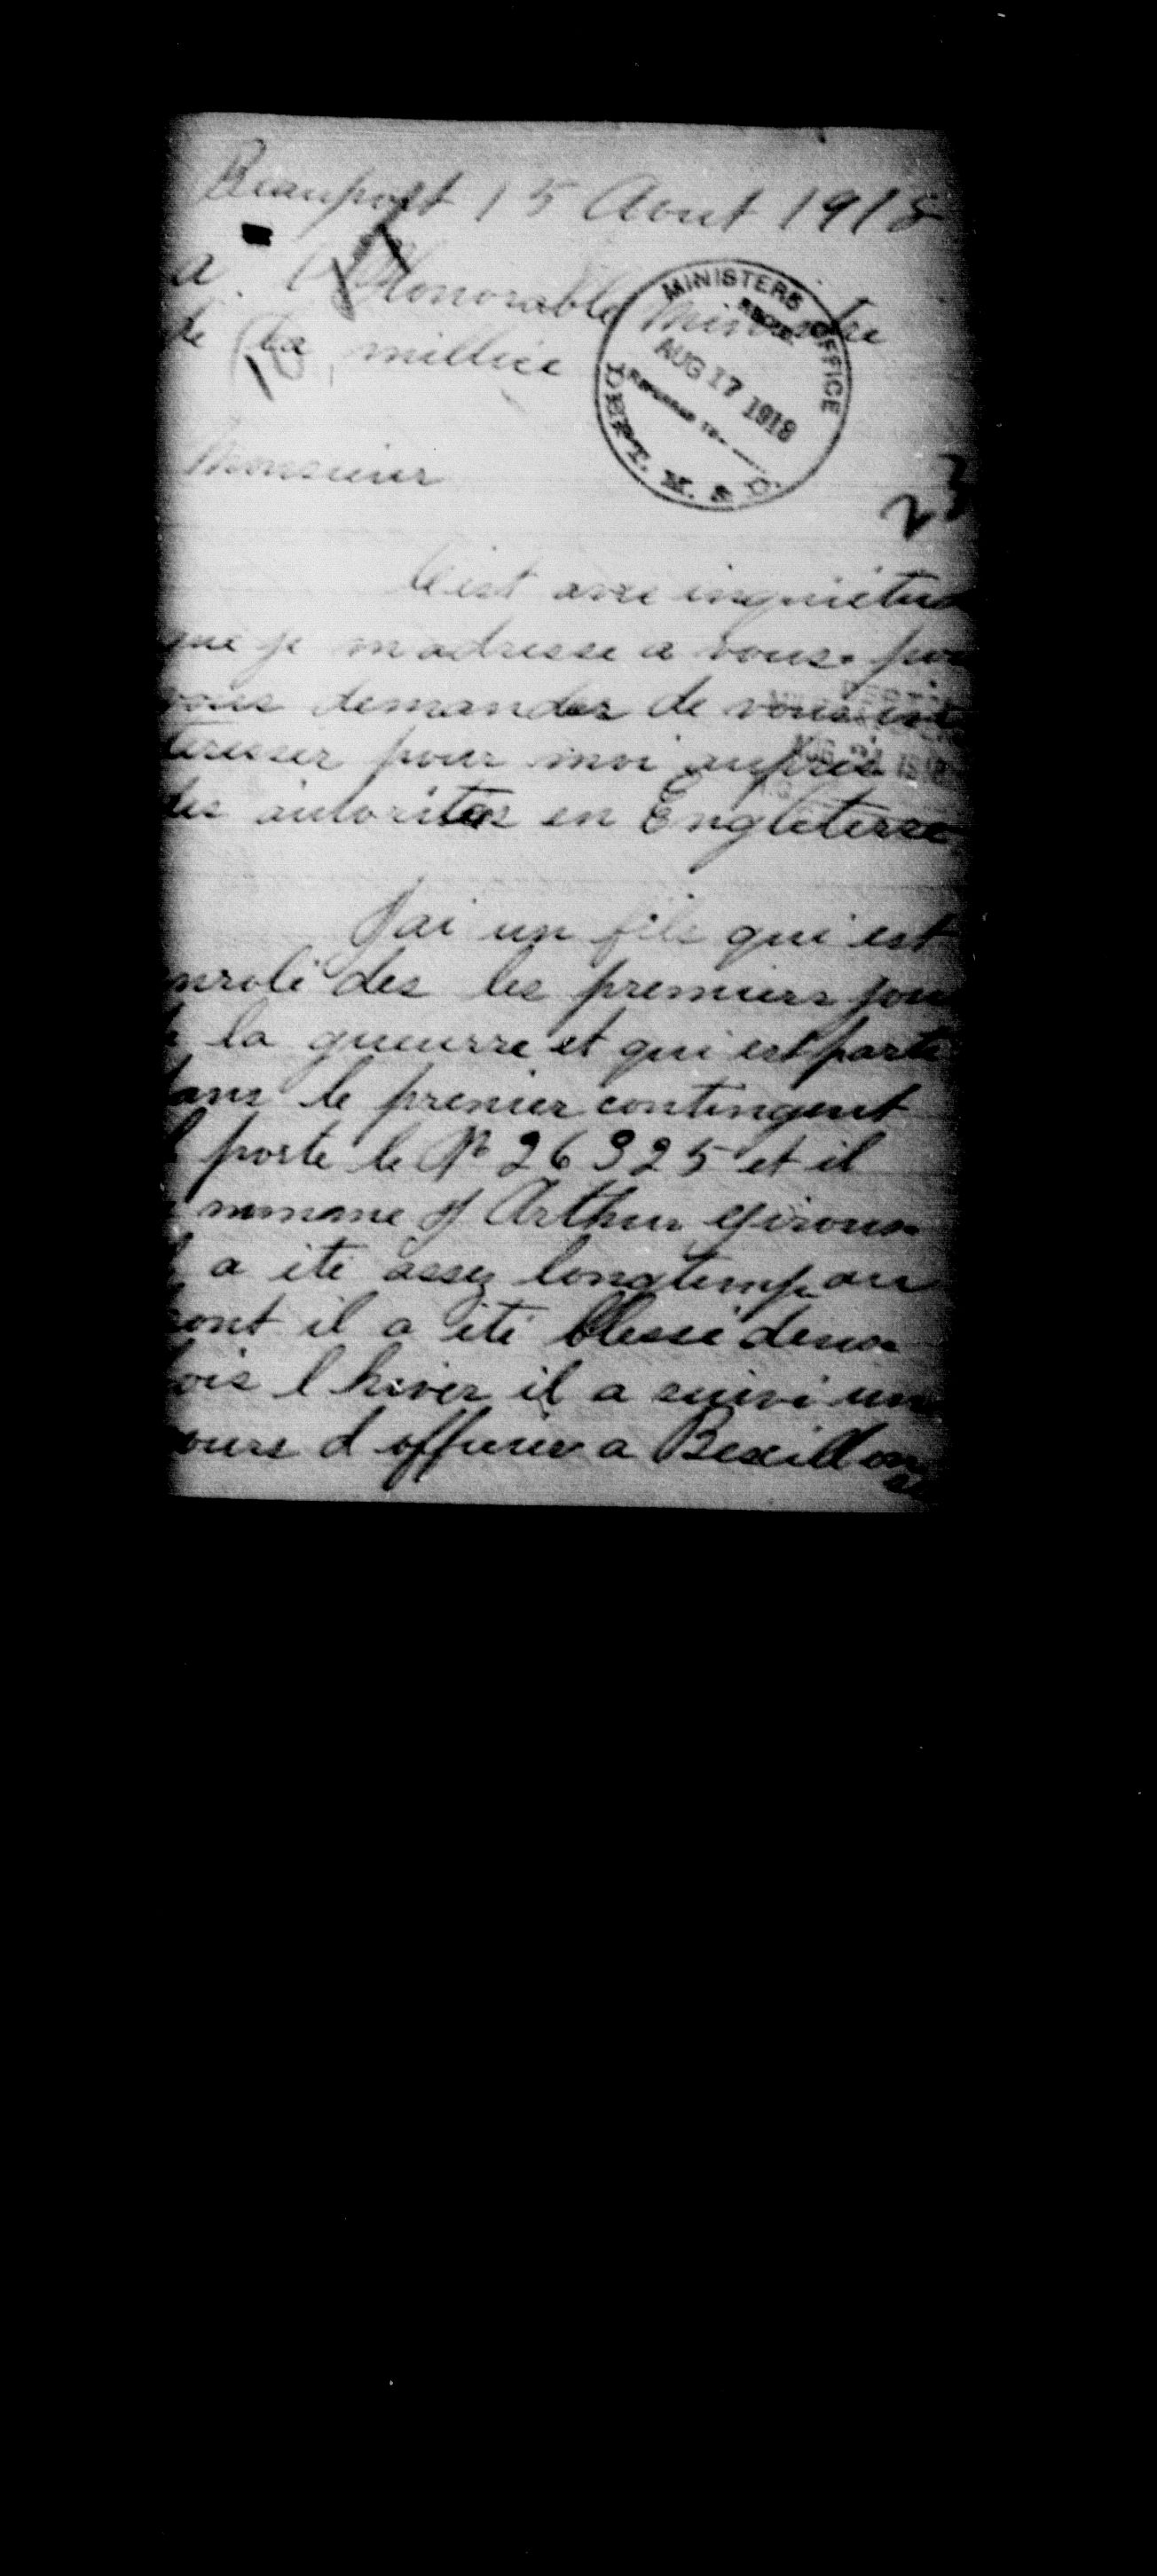 Beauport 15 Aout 1918
a l Honorable Ministre
de la millice
MINISTERS OFFICE
AUG 17 1918
REFERRED TO
DEPT. M. & D.
Monsieur
23
C'est avec inquiétud
que je m adresse a vous pou
vous demander de vous in
teresser pour moi aupres
des autorites en Engleterre
J'ai un fils qui est
enrolé des les premiers jou
la gueurre et qui est parti
dans le premier contingent
porte le No 26325 et il
nomme J Arthur Giroux
a été assez longtemp au
ront il a été blessé deux
fois l hiver il a suivi un
cours d officier a Bexill on